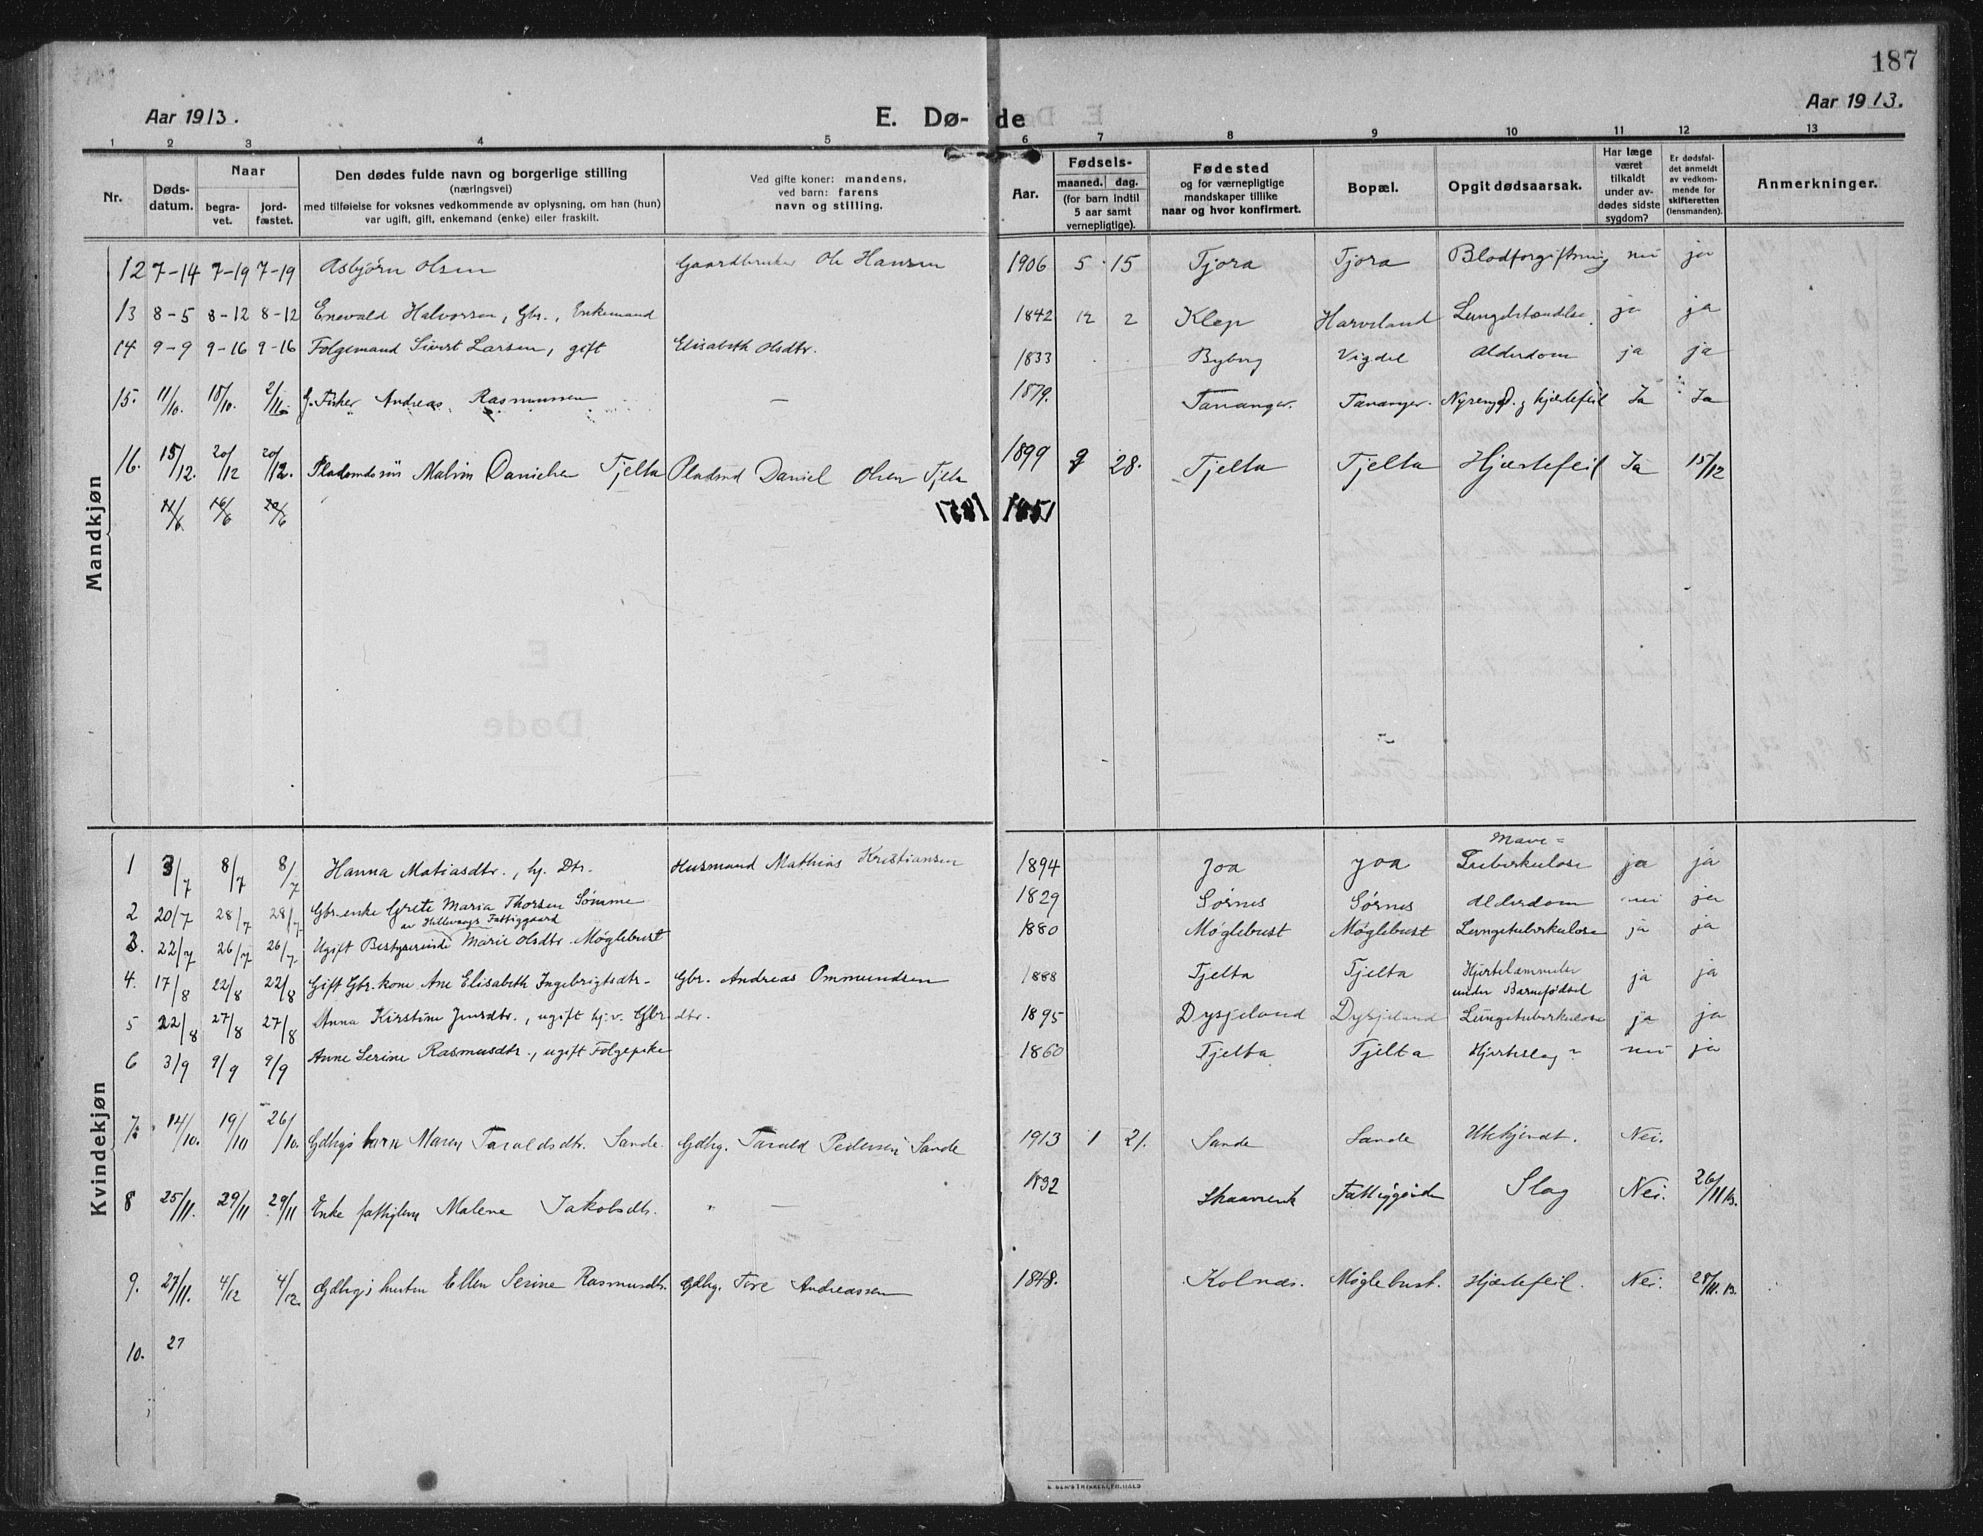 187
Aar 1913.
E. Døde
Aar 1913.
1 2 3 4 5 6 7 8 9 10 11 12 13
Nr.
Dødsdatum.
Naar
begravet.
jordfæstet.
Den dødes fulde navn og borgerlige stilling
(næringsvei)
med tilføielse for voksnes vedkommende av oplysning, om han (hun)
var ugift, gift, enkemand (enke) eller fraskilt.
Ved gifte koner: mandens,
ved barn: farens
navn og stilling.
Aar.
Fødsels-
maaned. dag.
(for barn indtil
5 aar samt
vernepligtige).
Fødested
og for værnepligtige
mandskaper tillike
naar og hvor konfirmert.
Bopæl.
Opgit dødsaarsak.
Har læge
været
tilkaldt
under av-
dødes sidste
sygdom?
Er dødsfal-
det anmeldt
av vedkom-
mende for
skifteretten
(lensmanden).
Anmerkninger.
Mandkjøn
12 7-14 7-19 7-19 Asbjörn Olsen Gaardbruker Ole Hansen 1906 5 15 Tjora Tjora Blodforgiftning nei ja
13 8-5 8-12 8-12 Enevald Halvorsen, Gbr., Enkemand 1842 12 2 Klep Harveland Lungebetændelse ja ja
14 9-9 9-16 9-16 Følgemand Sivert Larsen, gift Elisabeth Olsdtr. 1833 Byberg Vigdel Alderdom ja ja
15. 11/10. 18/10. 2/11. Fisker Andreas Rasmussen — 1879. Tananger. Tananger. og hjertefeil Ja Ja
16. 15/12. 20/12 20/12. Pladsmdssön Malvin Danielsen Tjelta Pladsmd Daniel Olsen Tjelta 1899 28. Tjelta Tjelta Hjertefeil Ja 15/12
16/6 20/6
Kvindekjøn
1 3/7 8/7 8/7 Hanna Matiasdtr., hj. Dtr. Husmand Mathias Kristiansen 1894 Joa Joa Mave=
Tuberkulose ja ja
2 20/7 28/7 28/7 Gbr.enke Grete Maria Thorsen Sømme 1829 Sørnes Sørnes Alderdom nei ja
3. 22/7 26/7 26/7 Ugift Bestyrerinde av Hillevaags Fattiggaard Marie Olsdtr. Møglebust 1880 Møglebust Møglebust Lungetuberkulose ja ja
4. 17/8 22/8 22/8 Gift Gbr.kone Ane Elisabeth Ingebrigtsdtr. Gbr. Andreas Ommundsen 1888 Tjelta Tjelta Hjertelammelse
under Barnefødsel ja ja
5 22/8 27/8 27/8 Anna Kirstine Jensdtr., ugift hj.v. Gbrdtr. 1895 Dysjeland Dysjeland Lungetuberkulose ja ja
6 3/9 9/9 9/9 Anne Serine Rasmusdtr., ugift Følgepike 1860 Tjelta Tjelta Hjerteslag? nei ja
7. 14/10. 19/10 26/10. Gdbgs barn Maren Taraldsdtr. Sande. Gdbg. Tarald Pedersen Sande 1913 1 21. Sande Sande Ukjendt. Nei.
8 25/11. 29/11 29/11 Enke fattiglem Malene Jakobsdtr. — 1832 Skaarenk Fattiggården Slag Nei. 26/11 13.
9. 27/11. 4/12 4/12. Gdbgs hustru Ellen Serine Rasmusdtr. Gdbg. Tore Andreassen 1848. Kolnæs. Møglebust. Hjertefeil. Nei. 28/11. 13.
10. 27